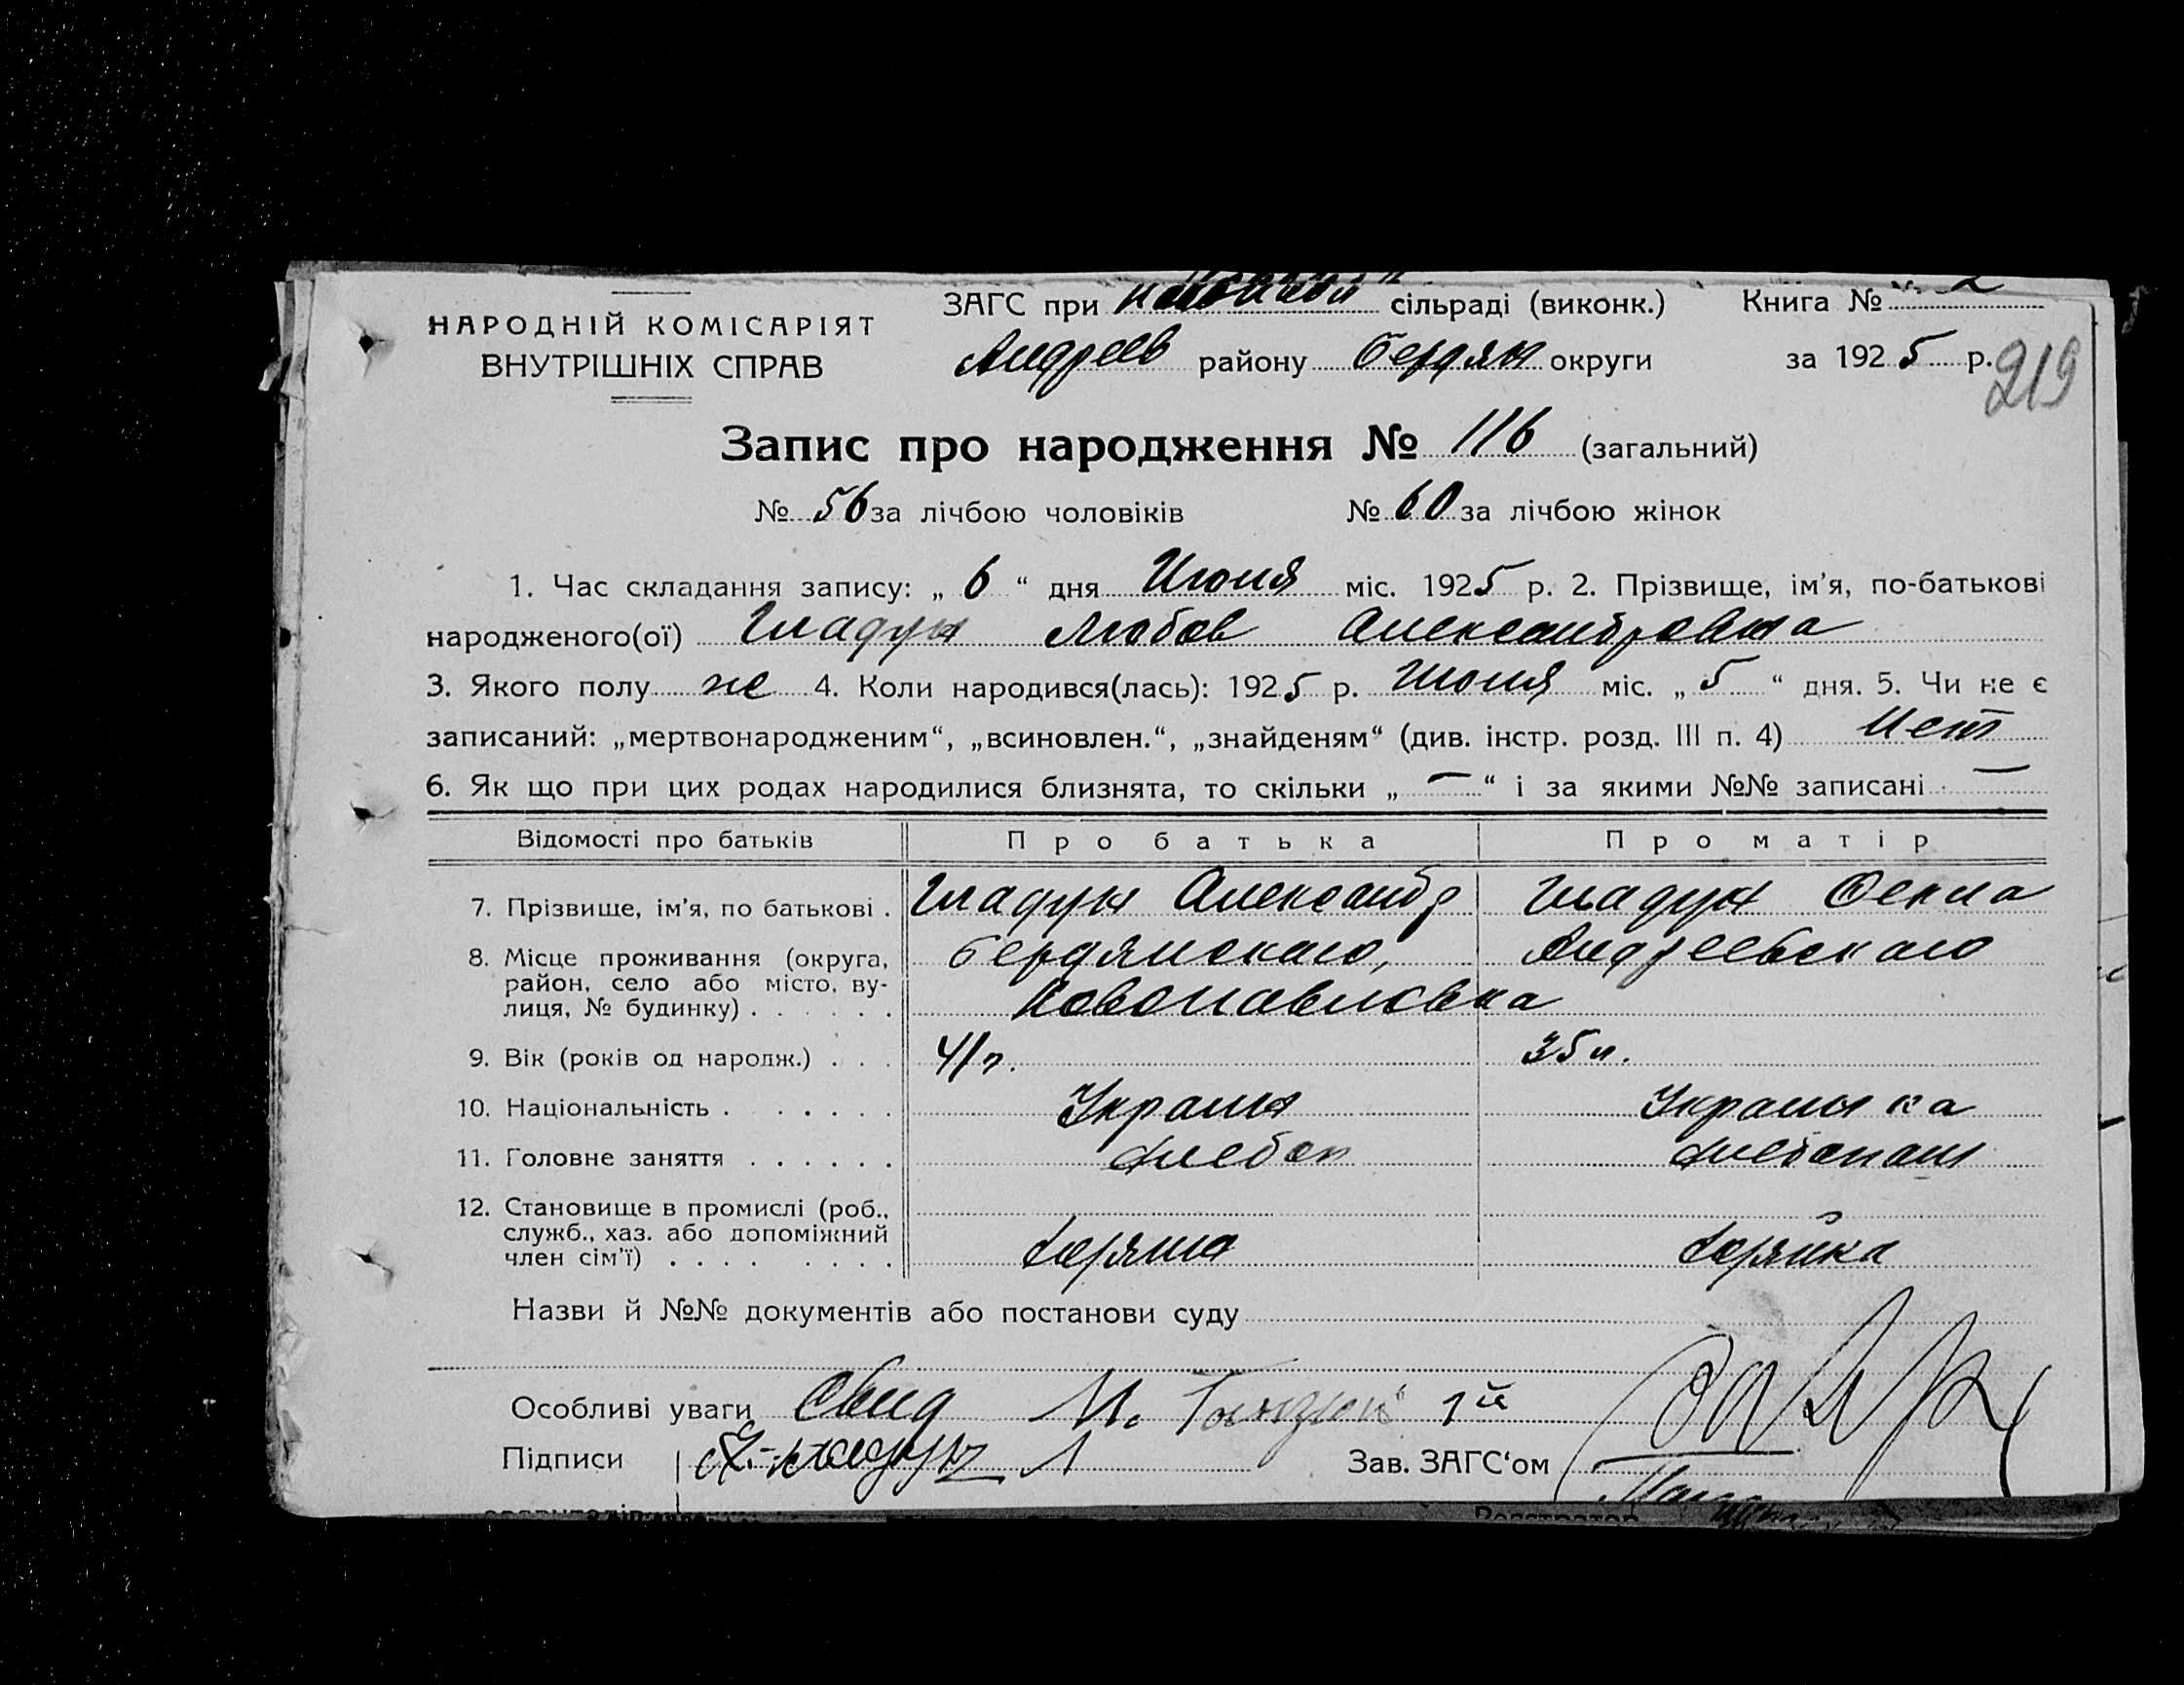 НАРОДНІЙ КОМІСАРІЯТ
ВНУТРІШНІХ СПРАВ
ЗАГС при сільраді (виконк.) Книга № 2
Андреев району Бердян округи за 1925 р.
219
Запис про народження № 116 (загальний)
№ 56 за лічбою чоловіків № 60 за лічбою жінок
1. Час складання запису: „ 6 “ дня Июня міс. 1925 р. 2. Прізвище, ім’я, по-батькові
народженого(ої) Гладун Любов Александровна
3. Якого полу же 4. Коли народився(лась): 1925 р. Июня міс. „ 5 “ дня. 5. Чи не є
записаний: „мертвонародженим“, „всиновлен.“, „знайденям“ (див. інстр. розд. III п. 4) Нет
6. Як що при цих родах народилися близнята, то скільки „ — “ і за якими №№ записані —
Відомості про батьків Про батька Про матір
7. Прізвище, ім’я, по батькові . Гладун Александр Гладун Фекла
8. Місце проживання (округа, Бердянскаго, Андреевскаго
район, село або місто, ву-
лиця, № будинку) . . . . . . Новопавловка
9. Вік (років од народж.) . . . 41 л. 35 л.
10. Національність . . . . . . Украин Украинка
11. Головне заняття . . . . . . Хлебоп Хлебопаш
12. Становище в промислі (роб.,
служб., хаз. або допоміжний
член сім’ї) . . . . . . . . Хозяин Хозяйка
Назви й №№ документів або постанови суду
Особливі уваги Свид М. 1й
Підписи Гладун Зав. ЗАГС‘ом
Реєстратор